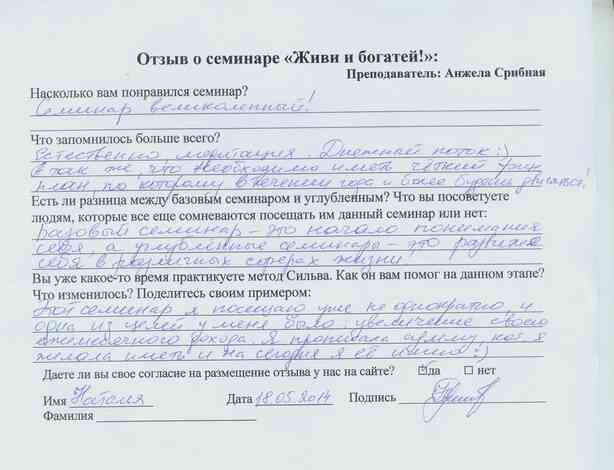 Отзыв о семинаре «Живи и богатей!»:
Преподаватель: Анжела Срибная
Насколько вам понравился семинар?
Семинар великолепный!
Что запомнилось больше всего?
Естественно медитация. Денежный поток :)
А так же, что необходимо иметь чёткий
план, по которому в течении года и более будешь двигаться!
Есть ли разница между базовым семинаром и углубленным? Что вы посоветуете
людям, которые все еще сомневаются посещать им данный семинар или нет:
Базовый семинар - это начало понимания
себя, а углублённые семинары - это развитие
себя в различных сферах жизни.
Вы уже какое-то время практикуете метод Сильва. Как он вам помог на данном этапе?
Что изменилось? Поделитесь своим примером:
Этот семинар я посещаю уже не однократно и
одна из целей у меня было увеличение своего
ежемесячного дохода. Я прописала сумму, кот. я
желала иметь и на сегодня я её имею :)
Даете ли вы свое согласие на размещение отзыва у нас на сайте? ☑да ☐ нет
Имя Наталя Дата 18.05.2014 Подпись
Фамилия